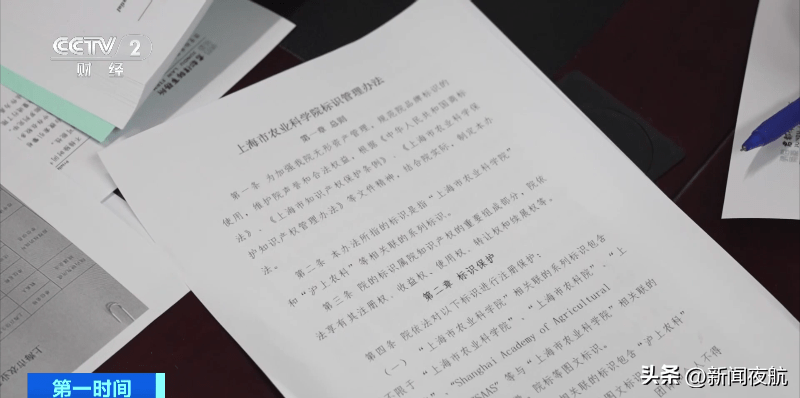 CCTV 2
财经
上海市农业科学院标识管理办法
第一章 总则
第一条 为加强我院无形资产管理，规范院品牌标识的
使用，维护院声誉和合法权益，根据《中华人民共和国商标
法》、《上海市知识产权保护条例》、《上海市农业科学院保
护知识产权管理办法》等文件精神，结合院实际，制定本办
法。
第二条 本办法所指的标识是指“上海市农业科学院”
和“沪上农科”等相关联的系列标识。
第三条 院的标识属院知识产权的重要组成部分，院依
法享有其注册权、收益权、使用权、转让权和续展权等。
第二章 标识保护
第四条 院依法对以下标识进行注册保护：
（一）“上海市农业科学院”相关联的系列标识包含
不限于“上海市农业科学院”、“上海市农科院”、“上
“Shanghai Academy of Agricultural
SAAS”等与“上海市农业科学院”相关联的
、院标等图文标识。
相关联的系列标识包含“沪上农科”
图文标识
人不得
第一时间
头条 @新闻夜航